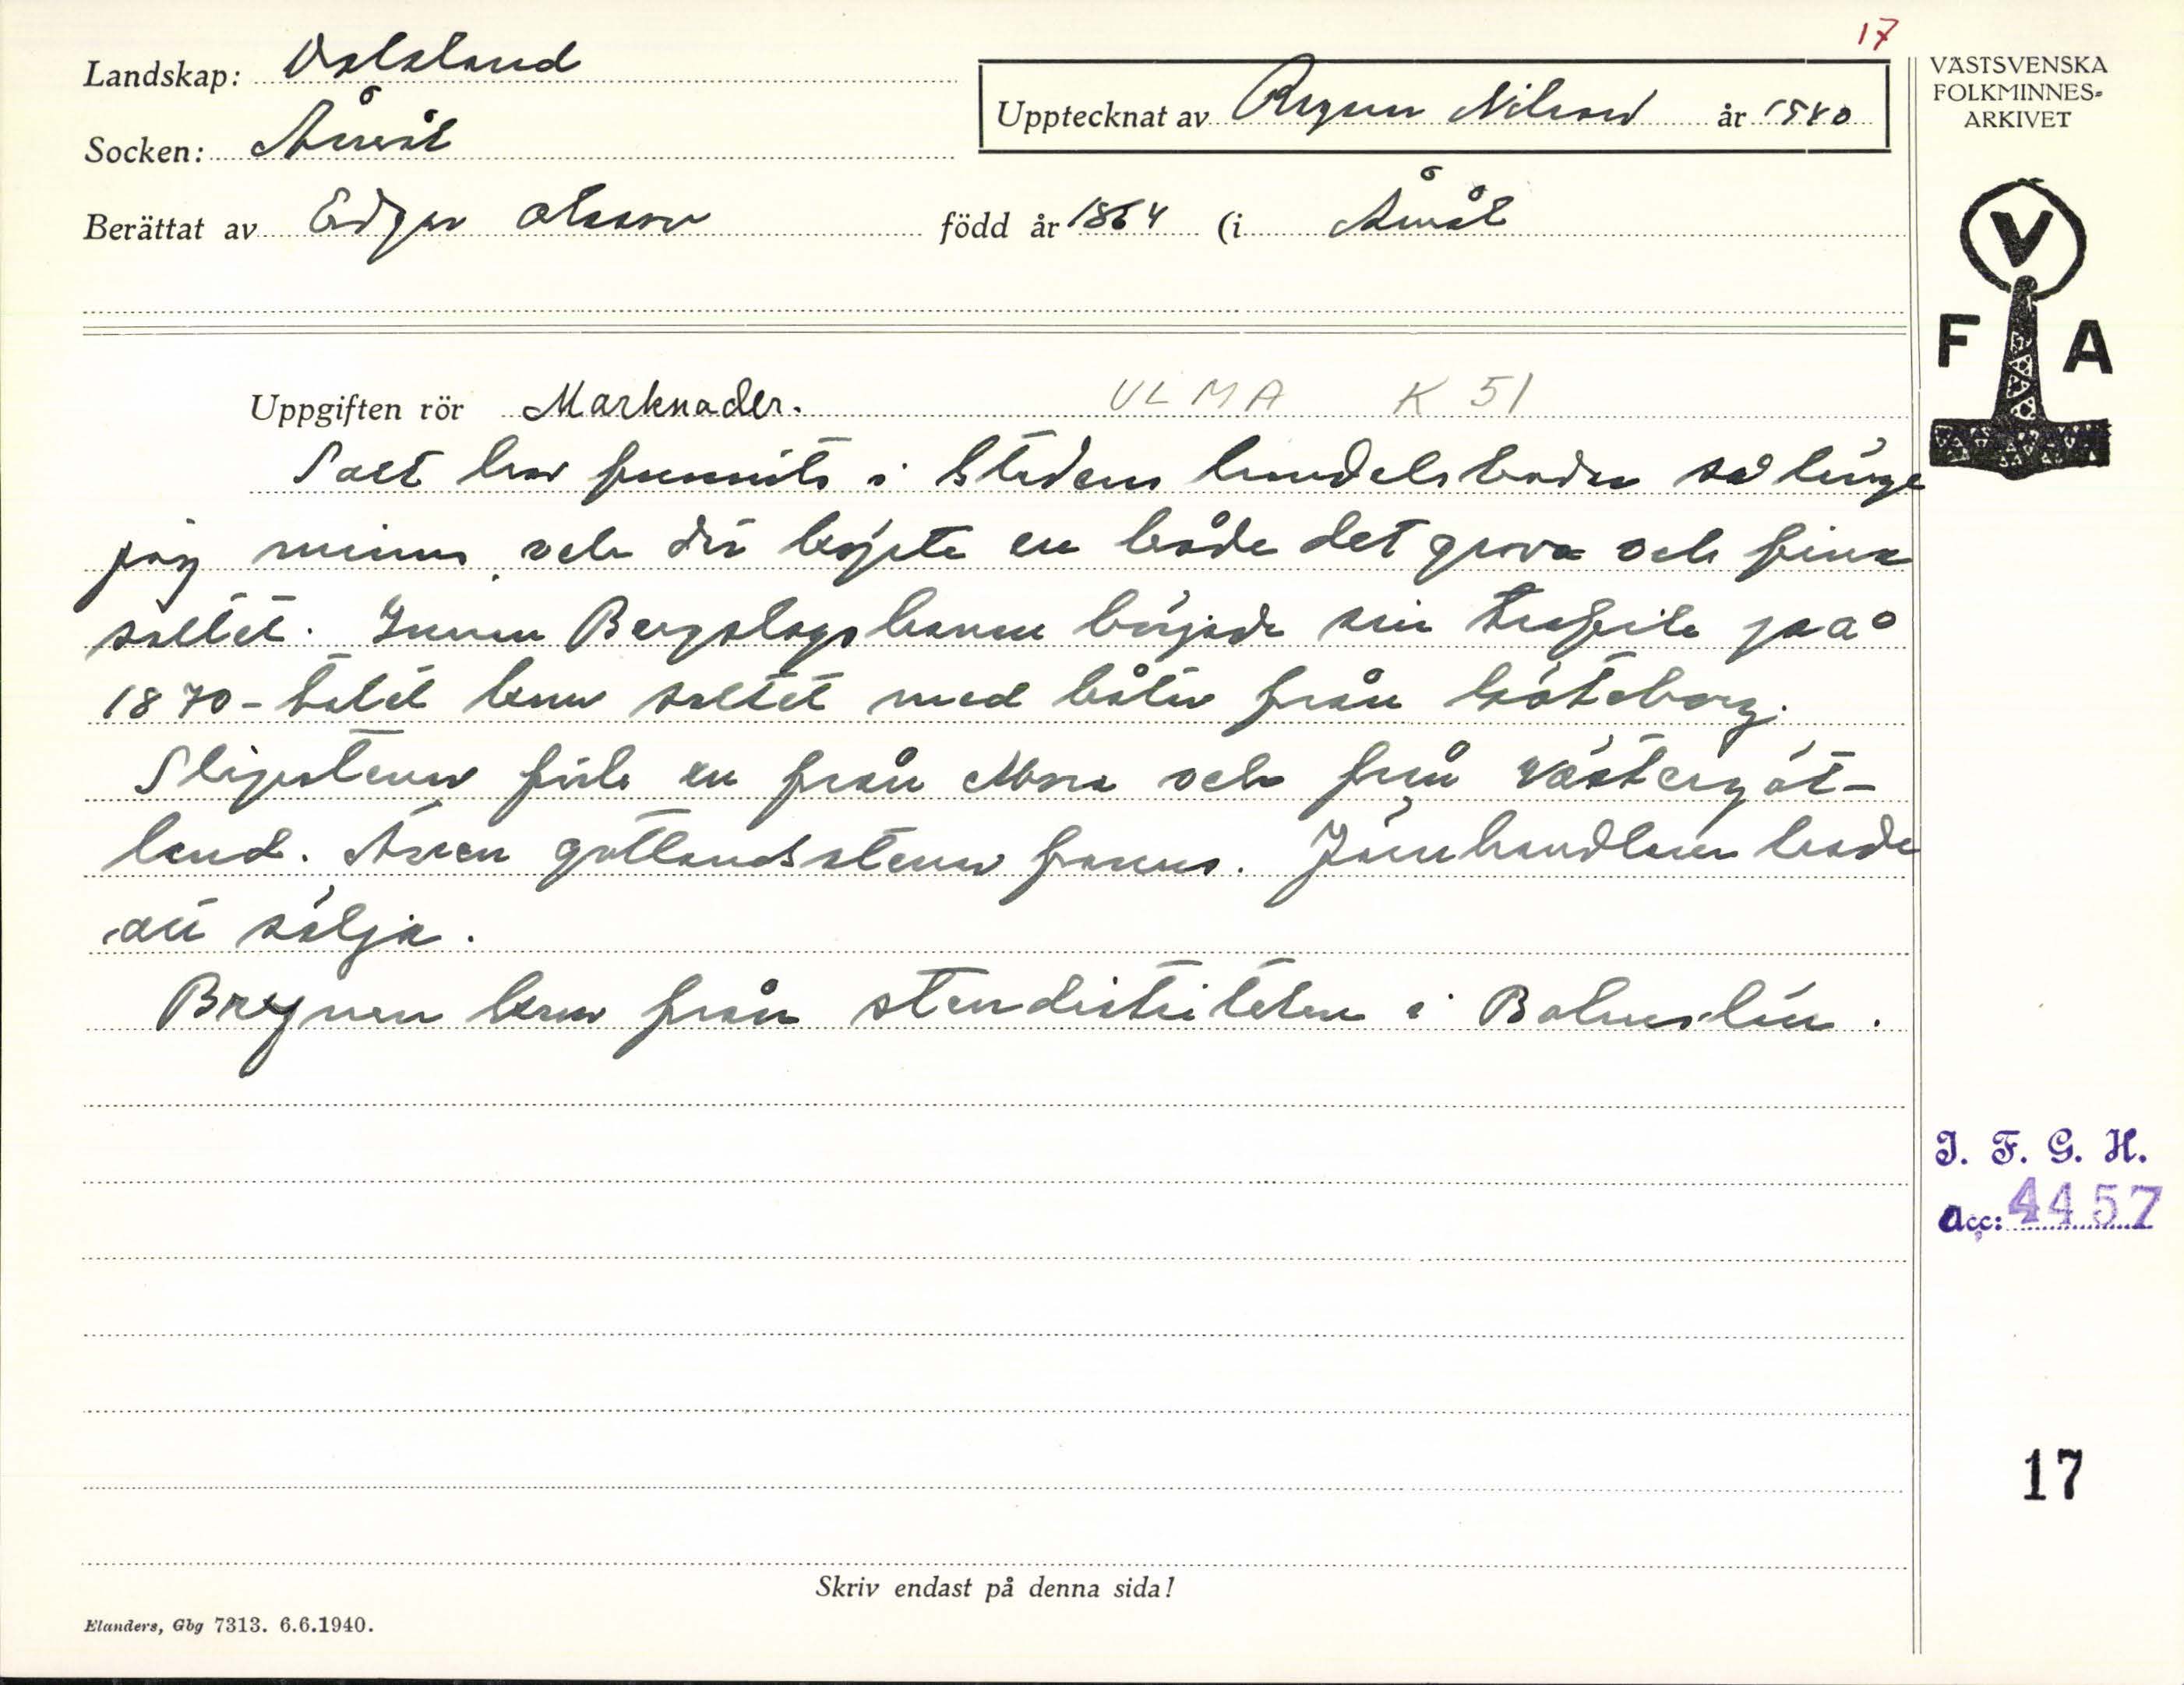 17
Landskap: Dalsland
Socken: Åmål
Upptecknat av Ragnar Nilsson år 1940
Berättat av Edgar Olsson född år 1864 (i Åmål
VÄSTSVENSKA
FOLKMINNES-
ARKIVET
V
F A
Uppgiften rör Marknader. ULMA K 51
Salt har funnits i Stadens handelsbodar så länge
jag minns, och där köpte en både det grova och fina
saltet. Innan Bergslagsbanan började sin trafik på
1870-talet kom saltet med båtar från Göteborg.
Slipstenar fick en från Mora och från Västergöt-
land. Även gottlandsstenar fanns. Järnhandlarn hade
att sälja.
Brynen kom från stendistrikten i Bohuslän.
I. F. G. H.
Acc: 4457
17
Skriv endast på denna sida!
Elanders, Gbg 7313. 6.6.1940.